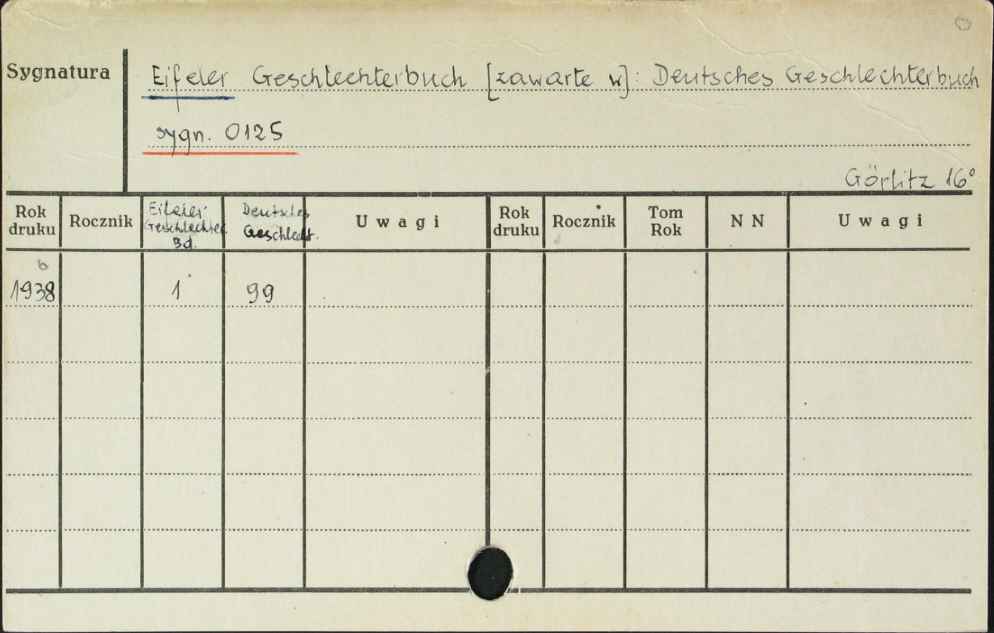 Sygnatura
Eifeler Geschlechterbuch [zawarte w]: Deutsches Geschlechterbuch
sygn. 0125
Görlitz 16°
Rok druku Rocznik Eifeler Geschlechter Bd. Deutsches Geschlecht. Uwagi Rok druku Rocznik Tom Rok NN Uwagi
6
1938 1 99